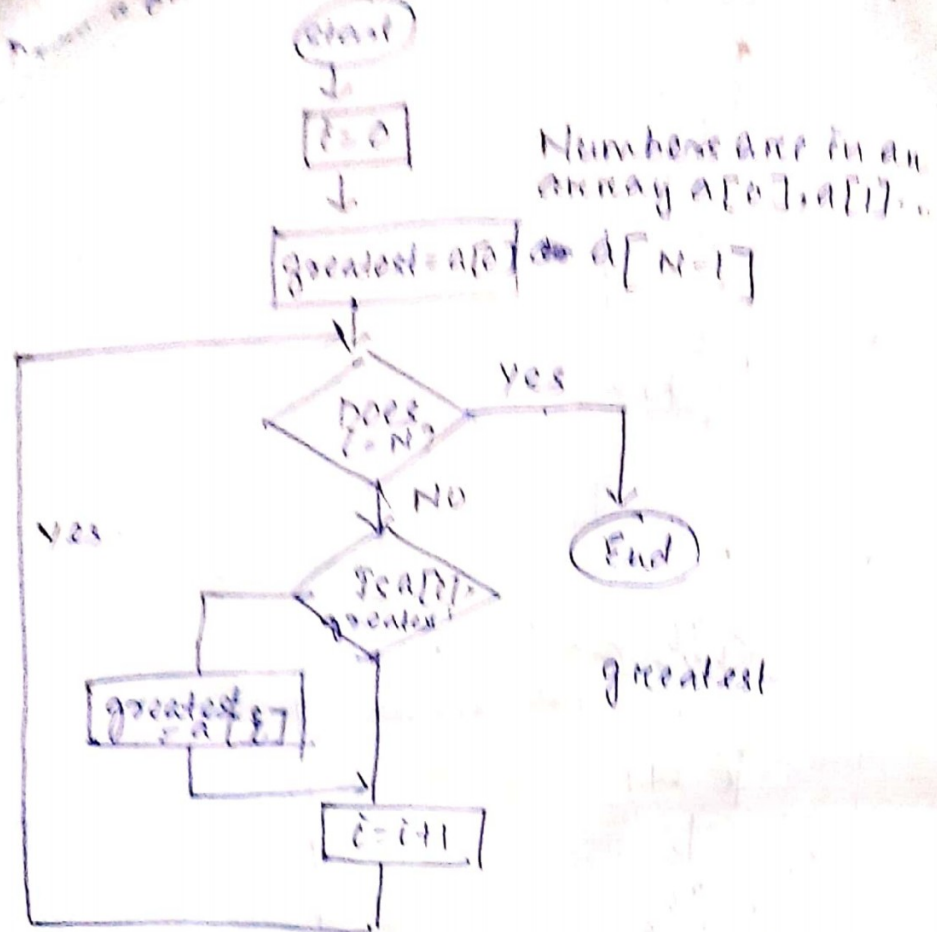 Start
i = 0
Numbers are in an
array a[0], a[1]...
greatest = a[0]
a[N-1]
Does
i = N?
Yes
No
Yes
End
Is a[i]>
greatest
greatest
greatest
= a[i]
i = i+1